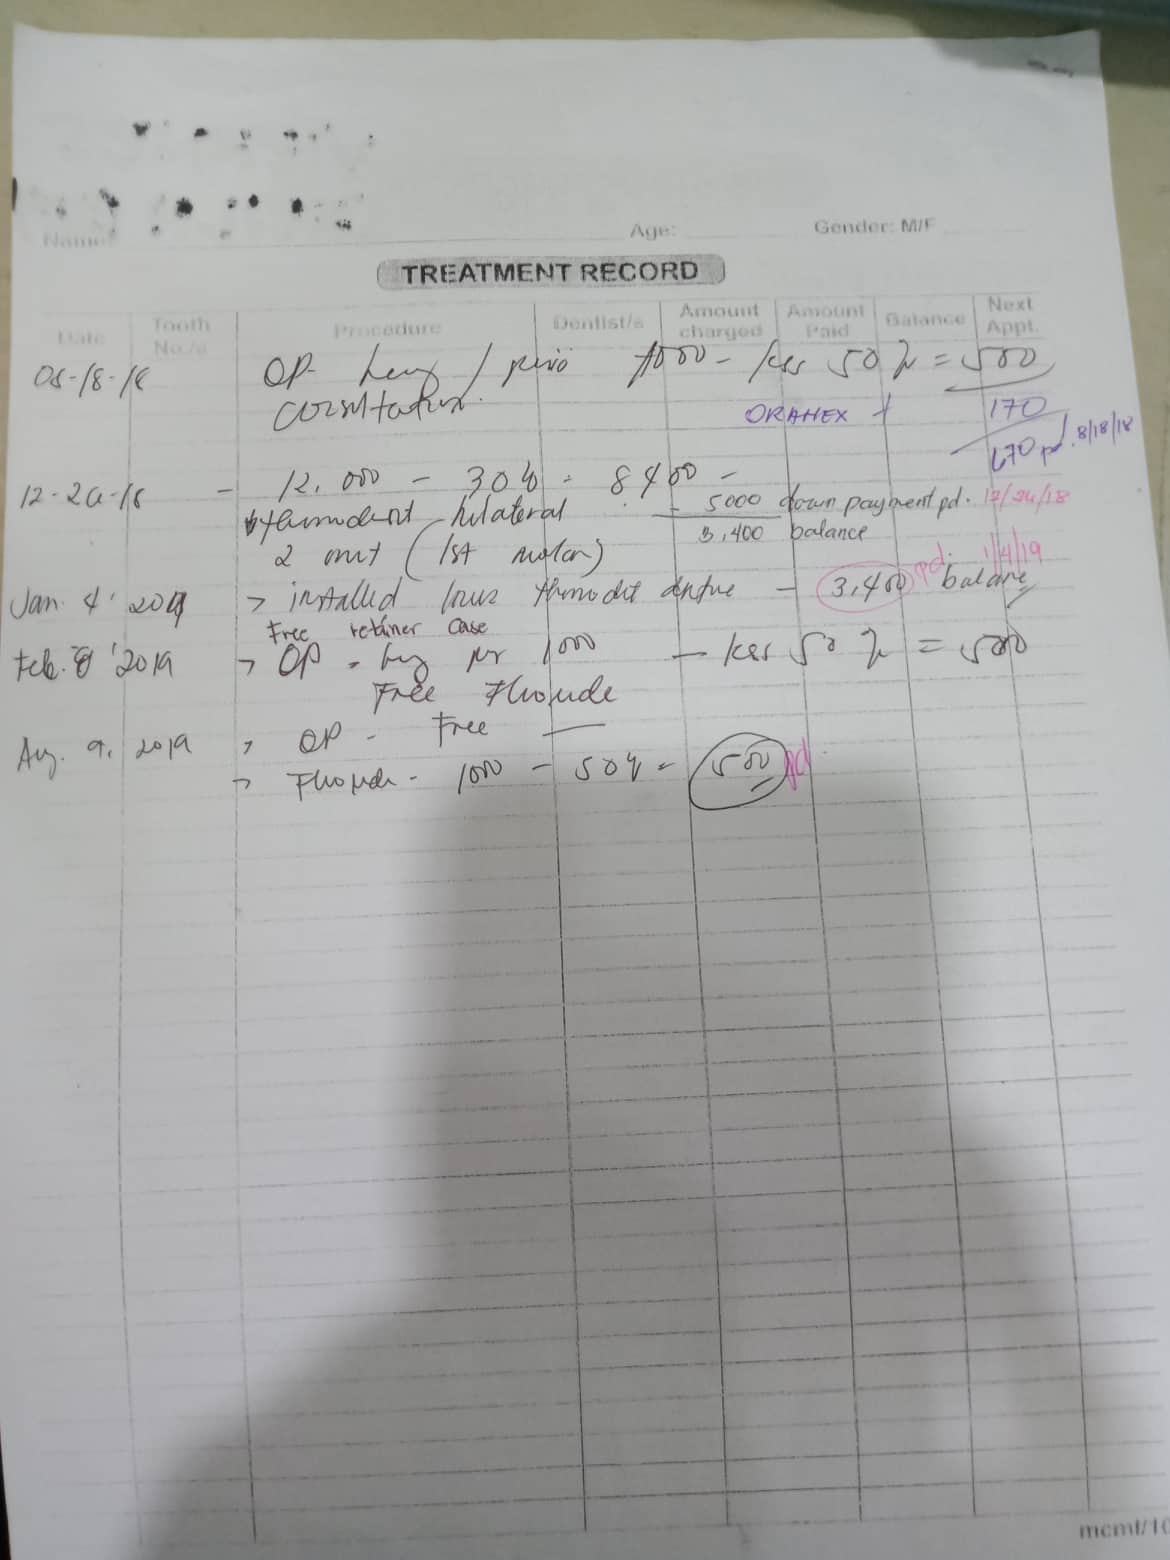 Name: Age: Gender: M/F
TREATMENT RECORD
Date Tooth No./s Procedure Dentist/s Amount charged Amount Paid Balance Next Appt.
08-18-18 OP - / 1000 - less 50% = 500
consultation. ORAHEX + 170
670 pd. 8/18/18
- 12,000 - 30% = 8400 -
bilateral - 5000 down payment pd.
2 unit (1st molar) 3,400 balance
Jan. 4, 2019 > installed denture - 3,400 balance pd. 1/4/19
Free retainer case
Feb. 8, 2019 > OP - 1000 - less 50% = 500
Free Fluoride
Aug. 9, 2019 > OP - Free
> Fluoride - 1000 - 50% = 500 pd